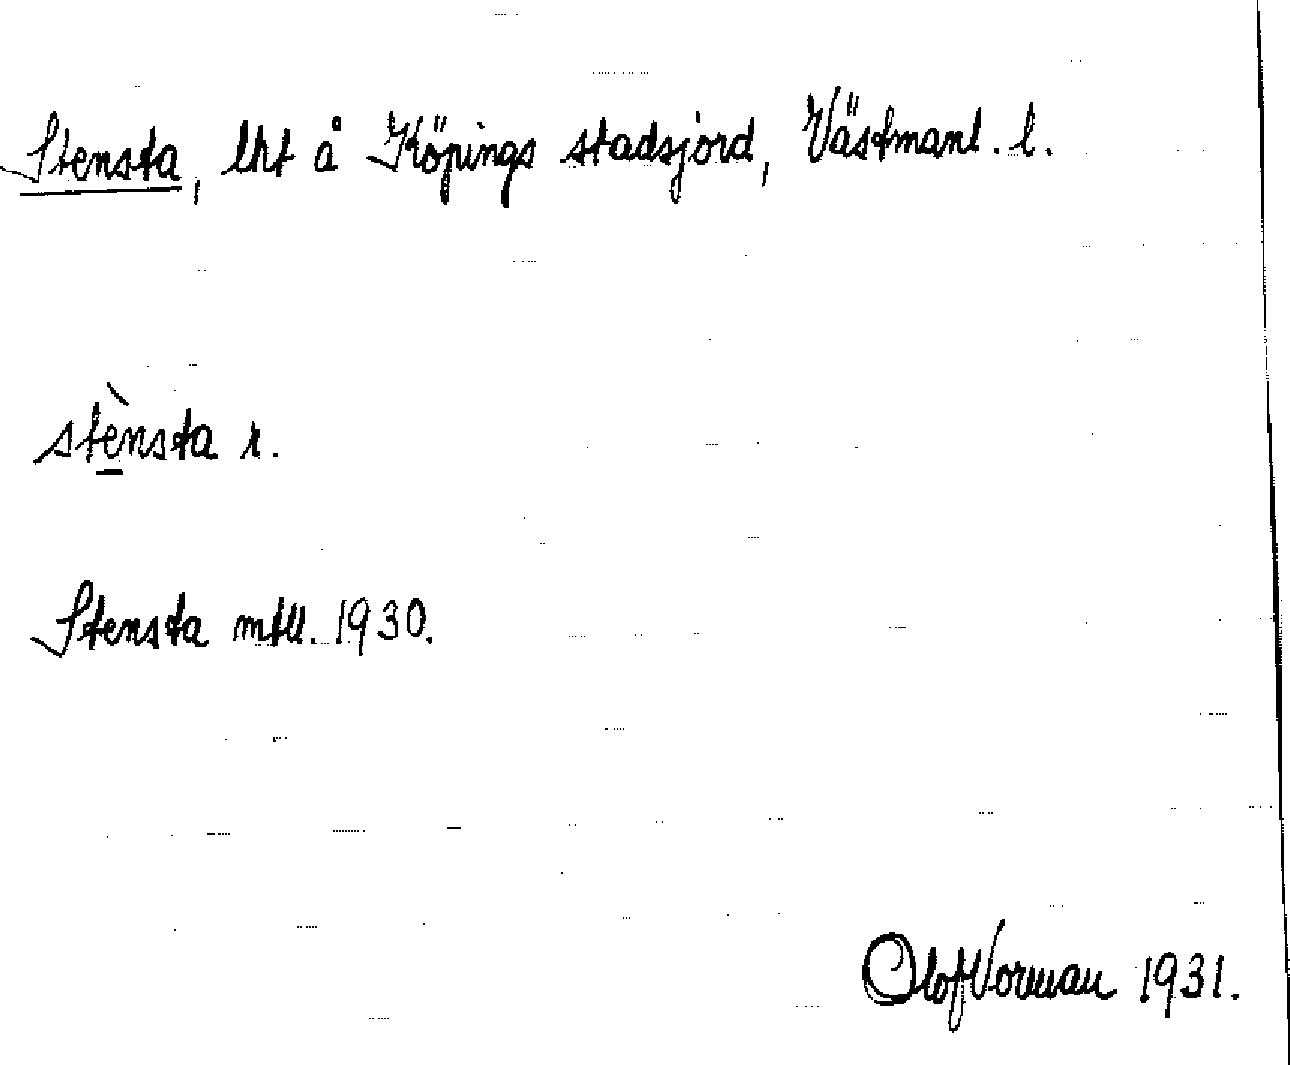 Stensta, lht å Köpings stadsjord, Västmanl. l.
stènsta r.
Stensta mtll. 1930.
Olof Vorman 1931.